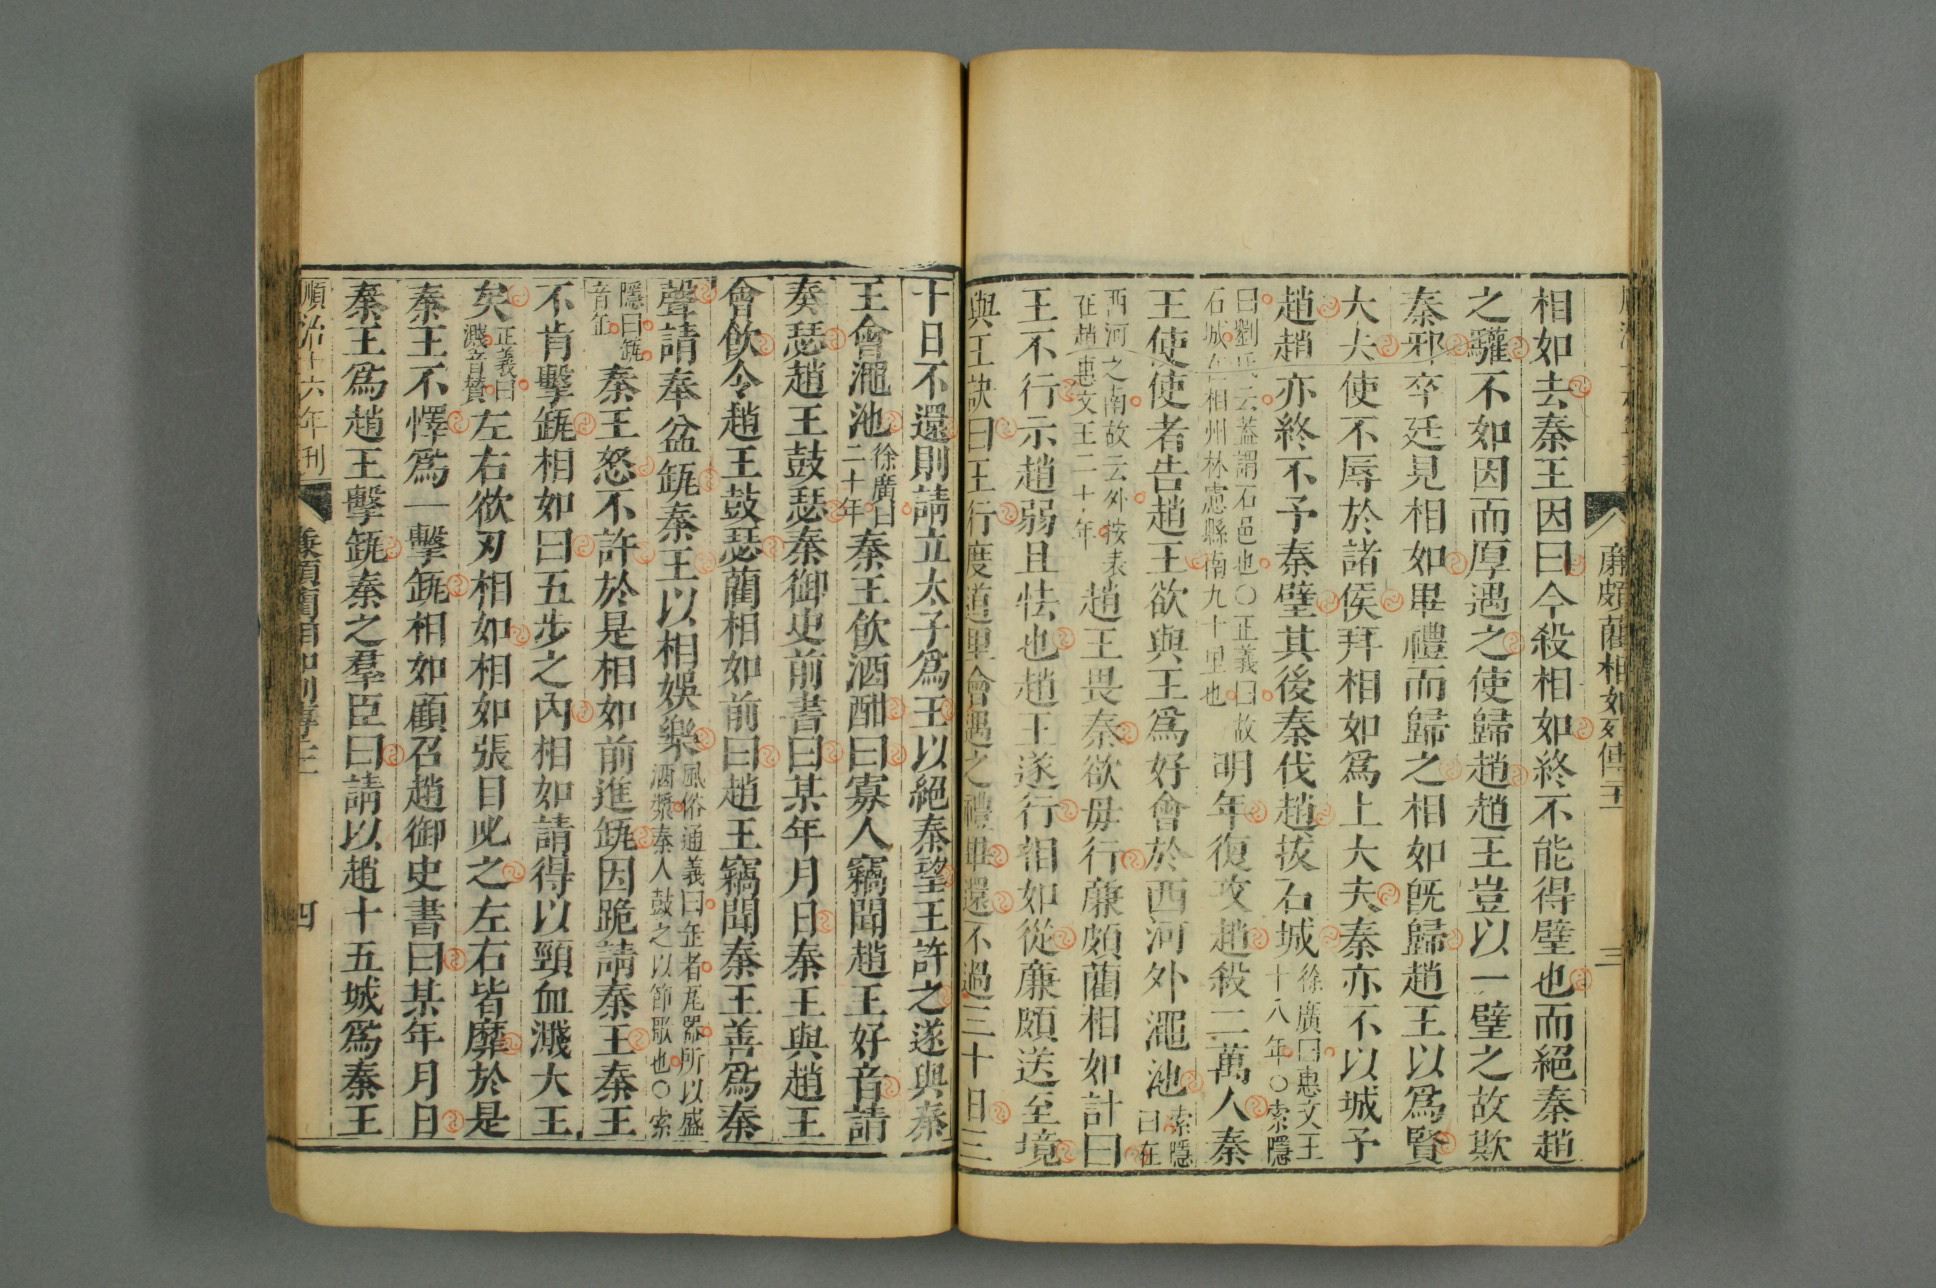 廉頗藺相如列傳
三
相如去秦王因曰今殺相如終不能得璧也而絕秦趙
之驩不如因而厚遇之使歸趙趙王豈以一璧之故欺
秦邪卒廷見相如畢禮而歸之相如旣歸趙王以爲賢
大夫使不辱於諸侯拜相如爲上大夫秦亦不以城予
趙趙亦終不予秦璧其後秦伐趙拔石城徐廣曰惠文王十八年○索隱
曰劉氏云蓋謂石邑也○正義曰故石城在相州林慮縣南九十里也明年復攻趙殺二萬人秦
王使使者告趙王欲與王爲好會於西河外澠池索隱曰在
西河之南故云外按表在趙惠文王二十年趙王畏秦欲毋行廉頗藺相如計曰
王不行示趙弱且怯也趙王遂行相如從廉頗送至境
與王訣曰王行度道里會遇之禮畢還不過三十日三
十日不還則請立太子爲王以絕秦望王許之遂與秦
王會澠池徐廣曰二十年秦王飲酒酣曰寡人竊聞趙王好音請
奏瑟趙王鼓瑟秦御史前書曰某年月日秦王與趙王
會飲令趙王鼓瑟藺相如前曰趙王竊聞秦王善爲秦
聲請奉盆缻秦王以相娛樂風俗通義曰缶者瓦器所以盛酒漿秦人鼓之以節歌也○索
隱曰缻音缶秦王怒不許於是相如前進缻因跪請秦王秦王
不肯擊缻相如曰五步之內相如請得以頸血濺大王
矣正義曰濺音贊左右欲刃相如相如張目叱之左右皆靡於是
秦王不懌爲一擊缻相如顧召趙御史書曰某年月日
秦王爲趙王擊缻秦之羣臣曰請以趙十五城爲秦王
順治十六年刊
廉頗藺相如列傳
四